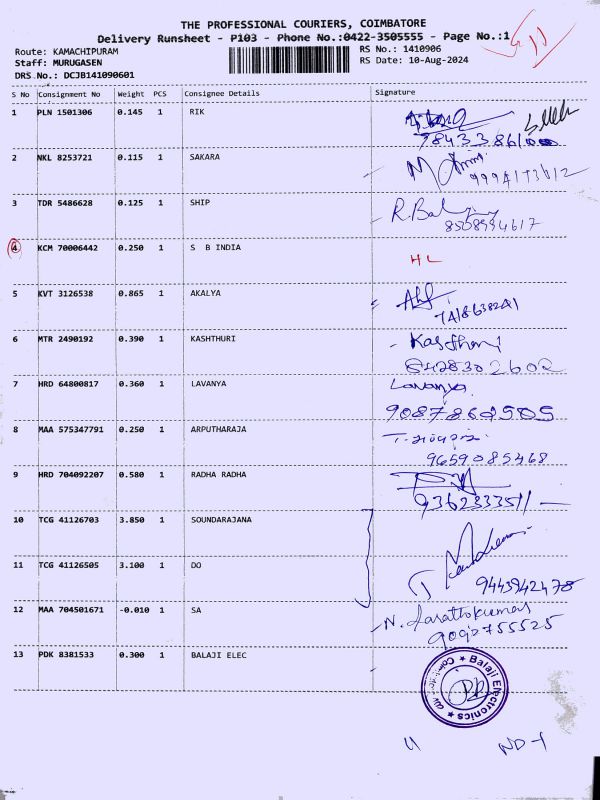 THE PROFESSIONAL COURIERS, COIMBATORE
Delivery Runsheet - P103 - Phone No.:0422-3505555 - Page No.:1
Route: KAMACHIPURAM RS No.: 1410906
Staff: MURUGASEN RS Date: 10-Aug-2024
DRS No.: DCJB141090601
S No Consignment No Weight PCS Consignee Details Signature
1 PLN 1501306 0.145 1 RIK
2 NKL 8253721 0.115 1 SAKARA
3 TDR 5486628 0.125 1 SHIP
8508994617
4 KCM 70006442 0.250 1 S B INDIA HL
5 KVT 3126538 0.865 1 AKALYA
6 MTR 2490192 0.390 1 KASHTHURI - Kasthuri
8428302602
7 HRD 64800817 0.360 1 LAVANYA Lavanya
9087862505
8 MAA 575347791 0.250 1 ARPUTHARAJA
9659085468
9 HRD 704092207 0.580 1 RADHA RADHA
9362333511
10 TCG 41126703 3.850 1 SOUNDARAJANA
11 TCG 41126505 3.100 1 DO
9443942478
12 MAA 704501671 -0.010 1 SA N. Sarathkumar
9092755525
13 PDK 8381533 0.300 1 BALAJI ELEC
Balaji Electronics
ND-1